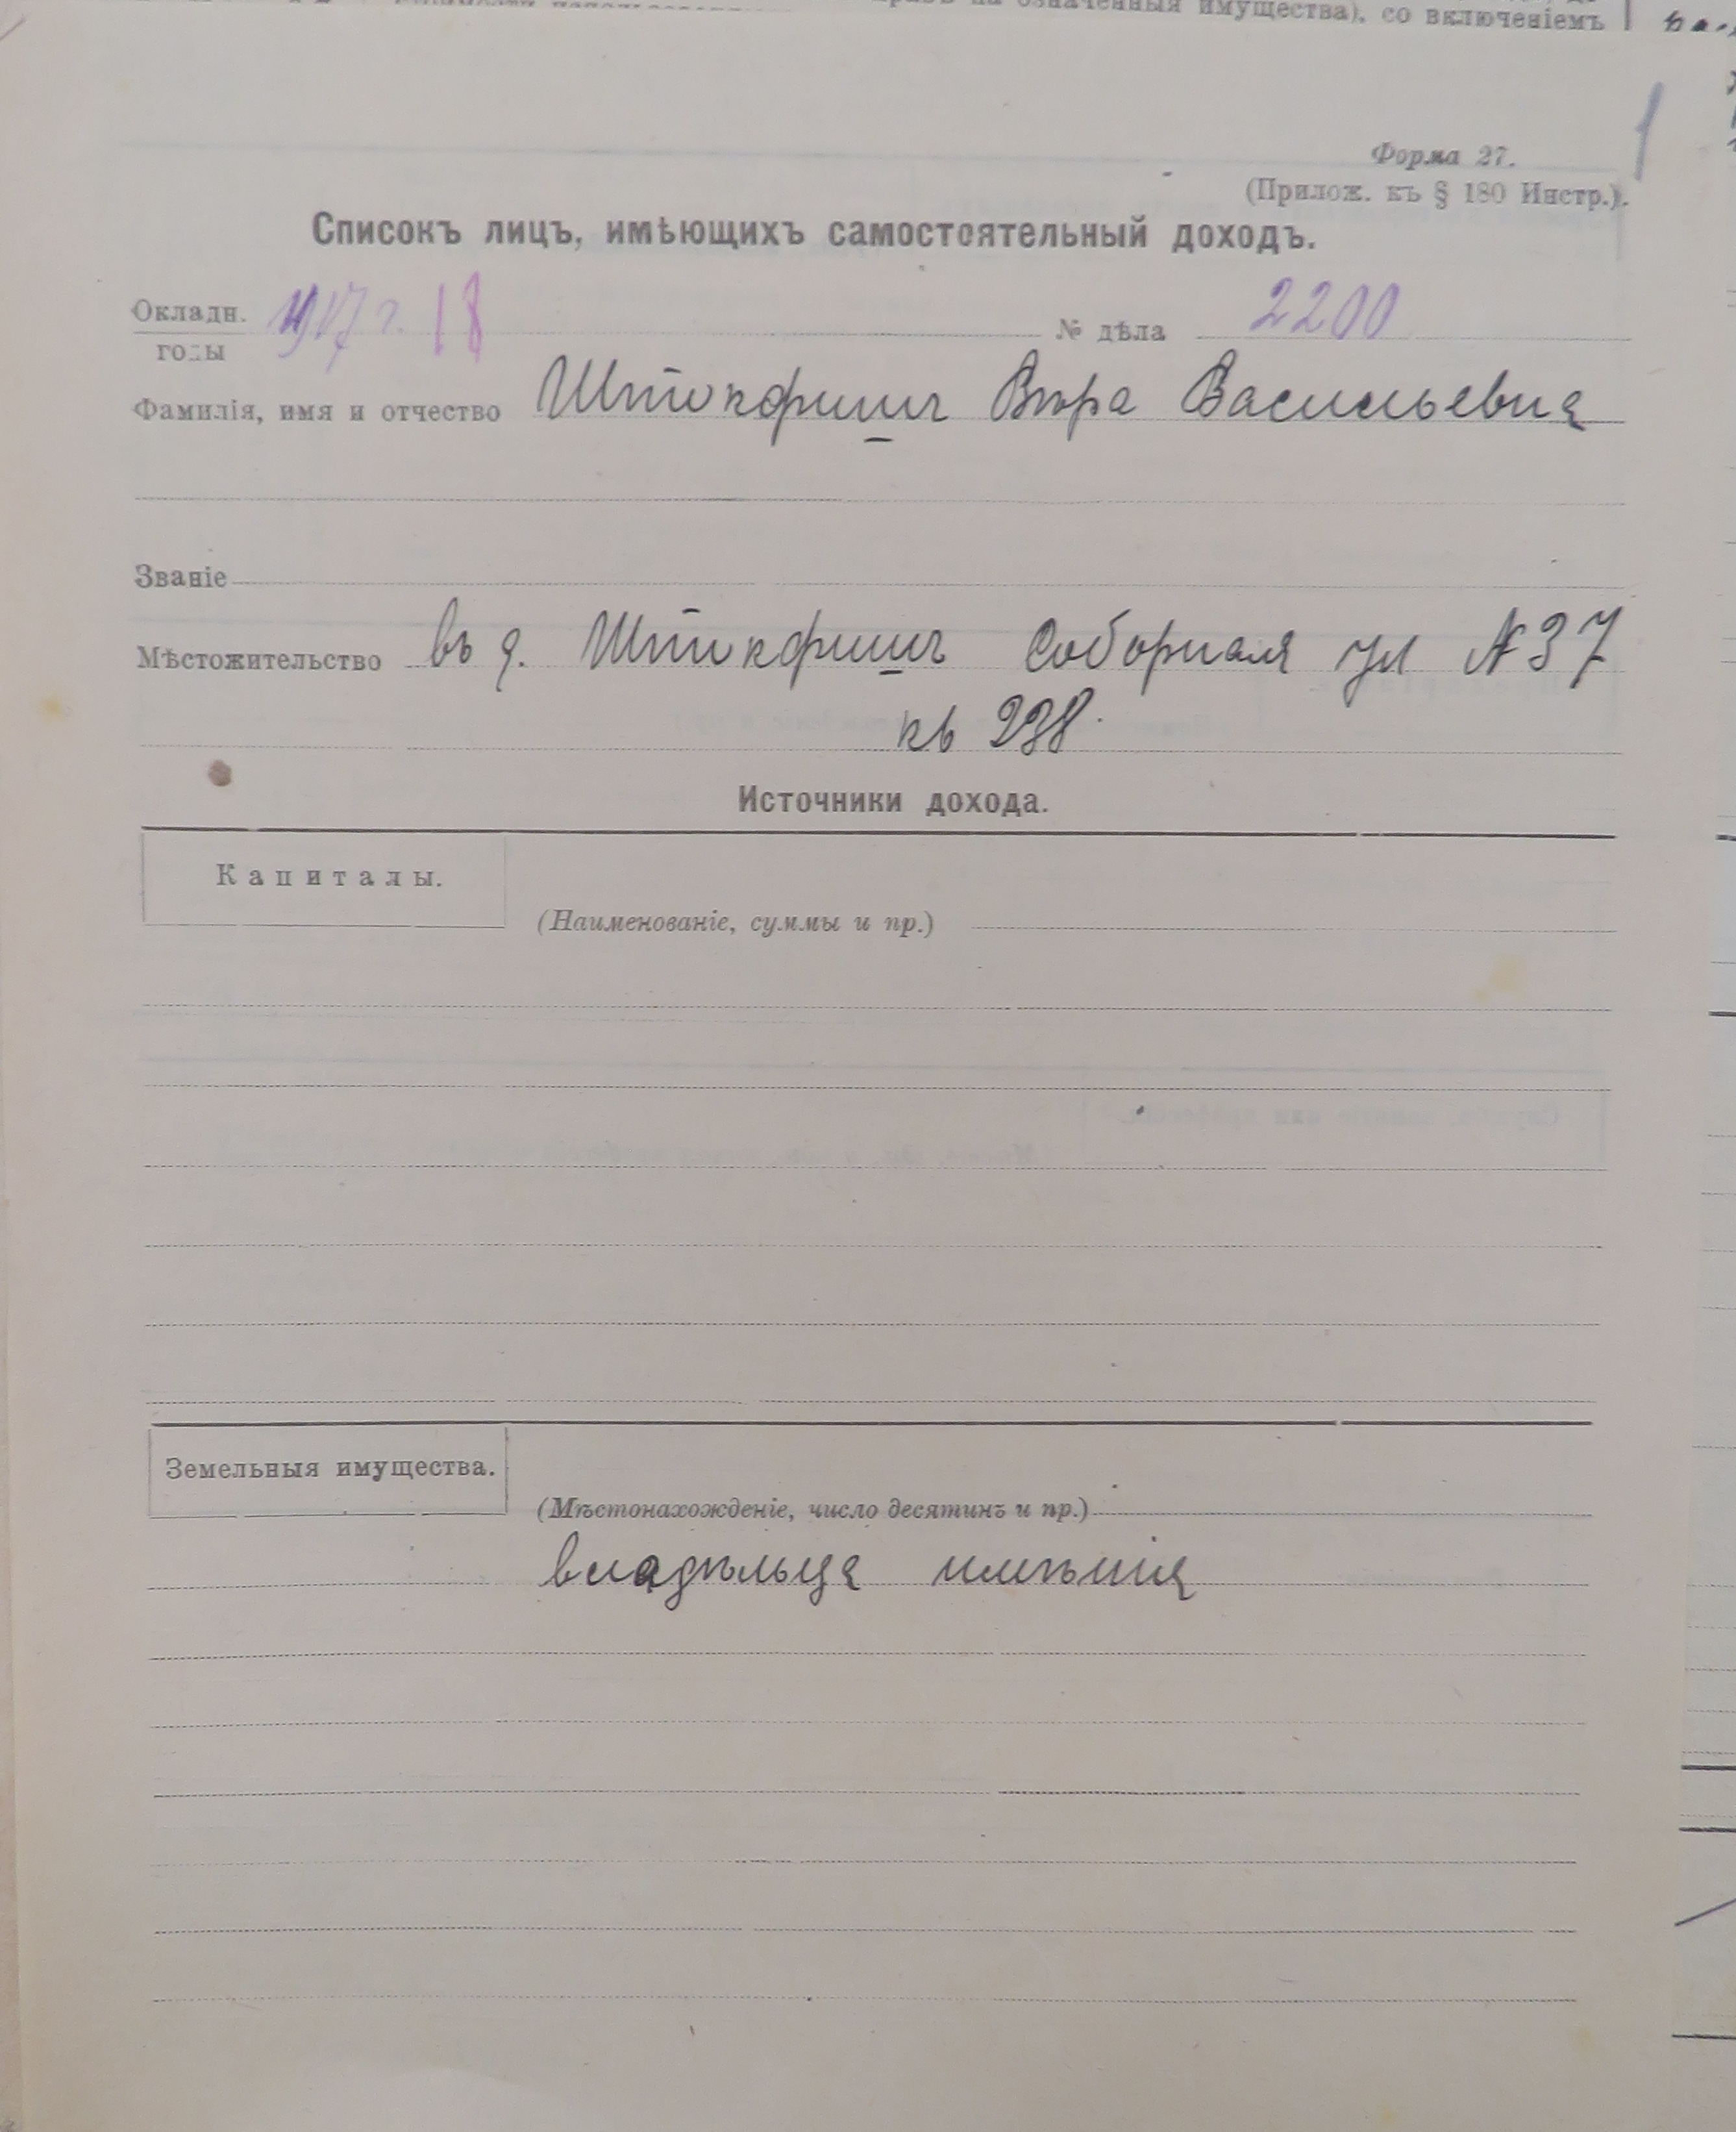 означенныя имущества), со включеніемъ
1
Форма 27.
(Прилож. къ § 180 Инстр.).
Списокъ лицъ, имѣющихъ самостоятельный доходъ.
Окладн. годы 1917 г. 18 № дѣла 2200
Фамилія, имя и отчество Штокфишъ Вѣра Васильевна
Званіе
Мѣстожительство въ д. Штокфишъ Соборная ул № 37
кв 238.
Источники дохода.
Капиталы.
(Наименованіе, суммы и пр.)
Земельныя имущества.
(Мѣстонахожденіе, число десятинъ и пр.)
владѣльца имѣнія